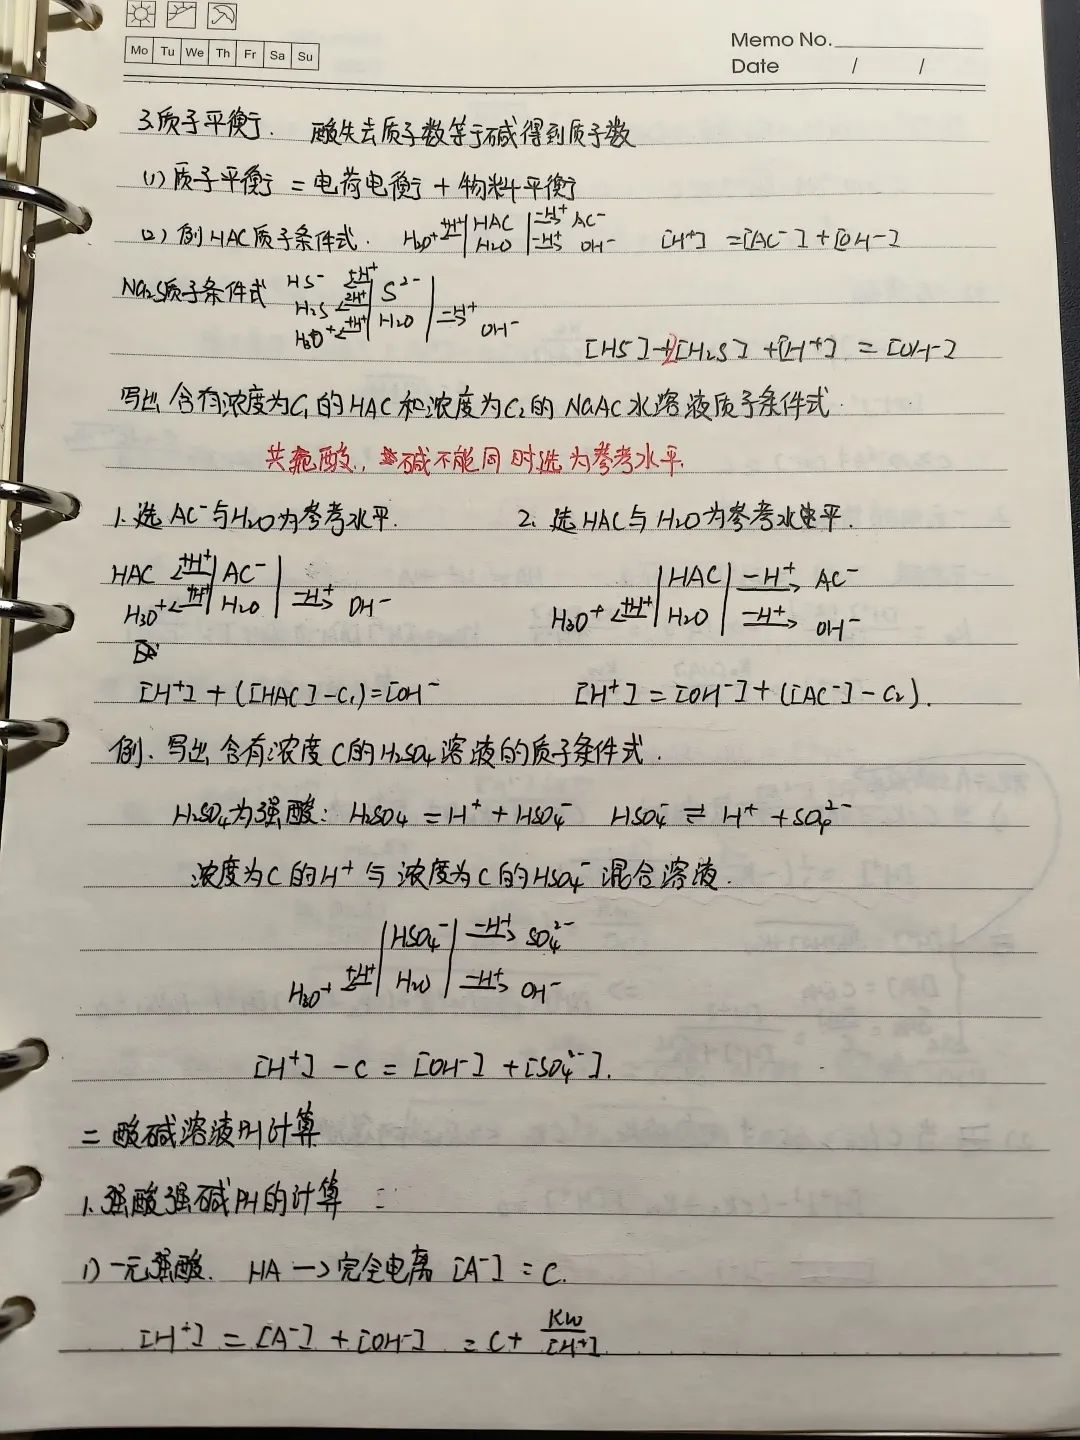 Mo Tu We Th Fr Sa Su
Memo No.
Date / /
3.质子平衡. 酸失去质子数等于碱得到质子数
(1) 质子平衡 = 电荷电衡 + 物料平衡
(2) 例 HAC 质子条件式. H₃O⁺ ←+H⁺ | HAC | −H⁺→ AC⁻ [H⁺] = [AC⁻] + [OH⁻]
H₂O | −H⁺→ OH⁻
Na₂S质子条件式 HS⁻ ←+H⁺ | S²⁻ |
H₂S ←2H⁺ | H₂O | −H⁺→ OH⁻
H₃O⁺ ←+H⁺
[HS⁻]+2[H₂S] + [H⁺] = [OH⁻]
写出含有浓度为C₁的HAC和浓度为C₂的NaAC水溶液质子条件式.
共轭酸、碱不能同时选为参考水平.
1. 选 AC⁻与H₂O为参考水平. 2. 选 HAC与 H₂O为参考水平.
HAC ←+H⁺ | AC⁻ | | HAC | −H⁺→ AC⁻
H₃O⁺ ←+H⁺ | H₂O | −H⁺→ OH⁻ H₃O⁺ ←+H⁺ | H₂O | −H⁺→ OH⁻
[H⁺] + ([HAC]−C₁) = [OH⁻ [H⁺] = [OH⁻] + ([AC⁻]−C₂).
例. 写出含有浓度C的H₂SO₄溶液的质子条件式.
H₂SO₄为强酸: H₂SO₄ = H⁺ + HSO₄⁻ HSO₄⁻ ⇌ H⁺ + SO₄²⁻
浓度为C的H⁺与浓度为C的HSO₄⁻混合溶液.
| HSO₄⁻ | −H⁺→ SO₄²⁻
H₃O⁺ ←+H⁺ | H₂O | −H⁺→ OH⁻
[H⁺] − C = [OH⁻] + [SO₄²⁻].
二 酸碱溶液PH计算
1. 强酸强碱PH的计算 :
1) 一元强酸. HA → 完全电离 [A⁻] = C.
[H⁺] = [A⁻] + [OH⁻] = C + Kw/[H⁺]